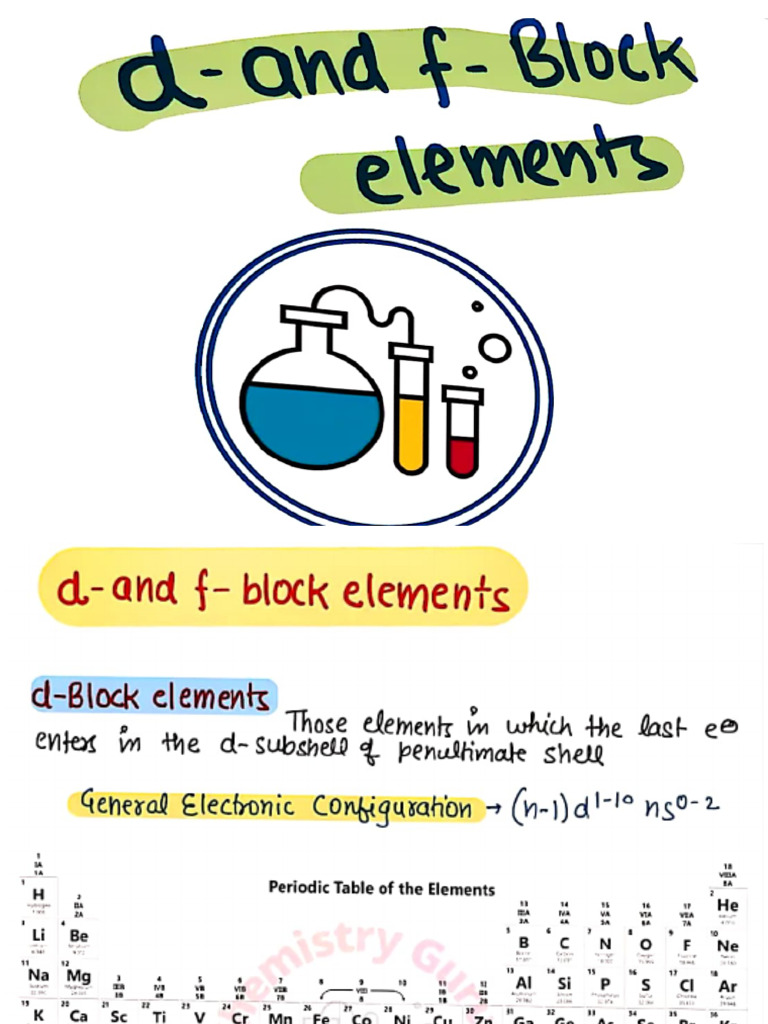 d-and f-Block
elements
d-and f-block elements
d-Block elements
Those elements in which the last e⊖
enters in the d-subshell of penultimate shell
General Electronic Configuration → (n-1)d¹⁻¹⁰ ns⁰⁻²
Periodic Table of the Elements
1 IA 1A
18 VIIIA 8A
1 H Hydrogen
2 IIA 2A
13 IIIA 3A
14 IVA 4A
15 VA 5A
16 VIA 6A
17 VIIA 7A
2 He
3 Li
4 Be
5 B
6 C
7 N
8 O
9 F
10 Ne
11 Na
12 Mg
3 IIIB 3B
4 IVB 4B
5 VB 5B
6 VIB 6B
7 VIIB 7B
8
9 VIII 8
10
11 IB 1B
12 IIB 2B
13 Al
14 Si
15 P
16 S
17 Cl
18 Ar
19 K
20 Ca
21 Sc
22 Ti
23 V
24 Cr
25 Mn
26 Fe
27 Co
28 Ni
29 Cu
30 Zn
31 Ga
32 Ge
33 As
34 Se
35 Br
36 Kr
hemistry Guru